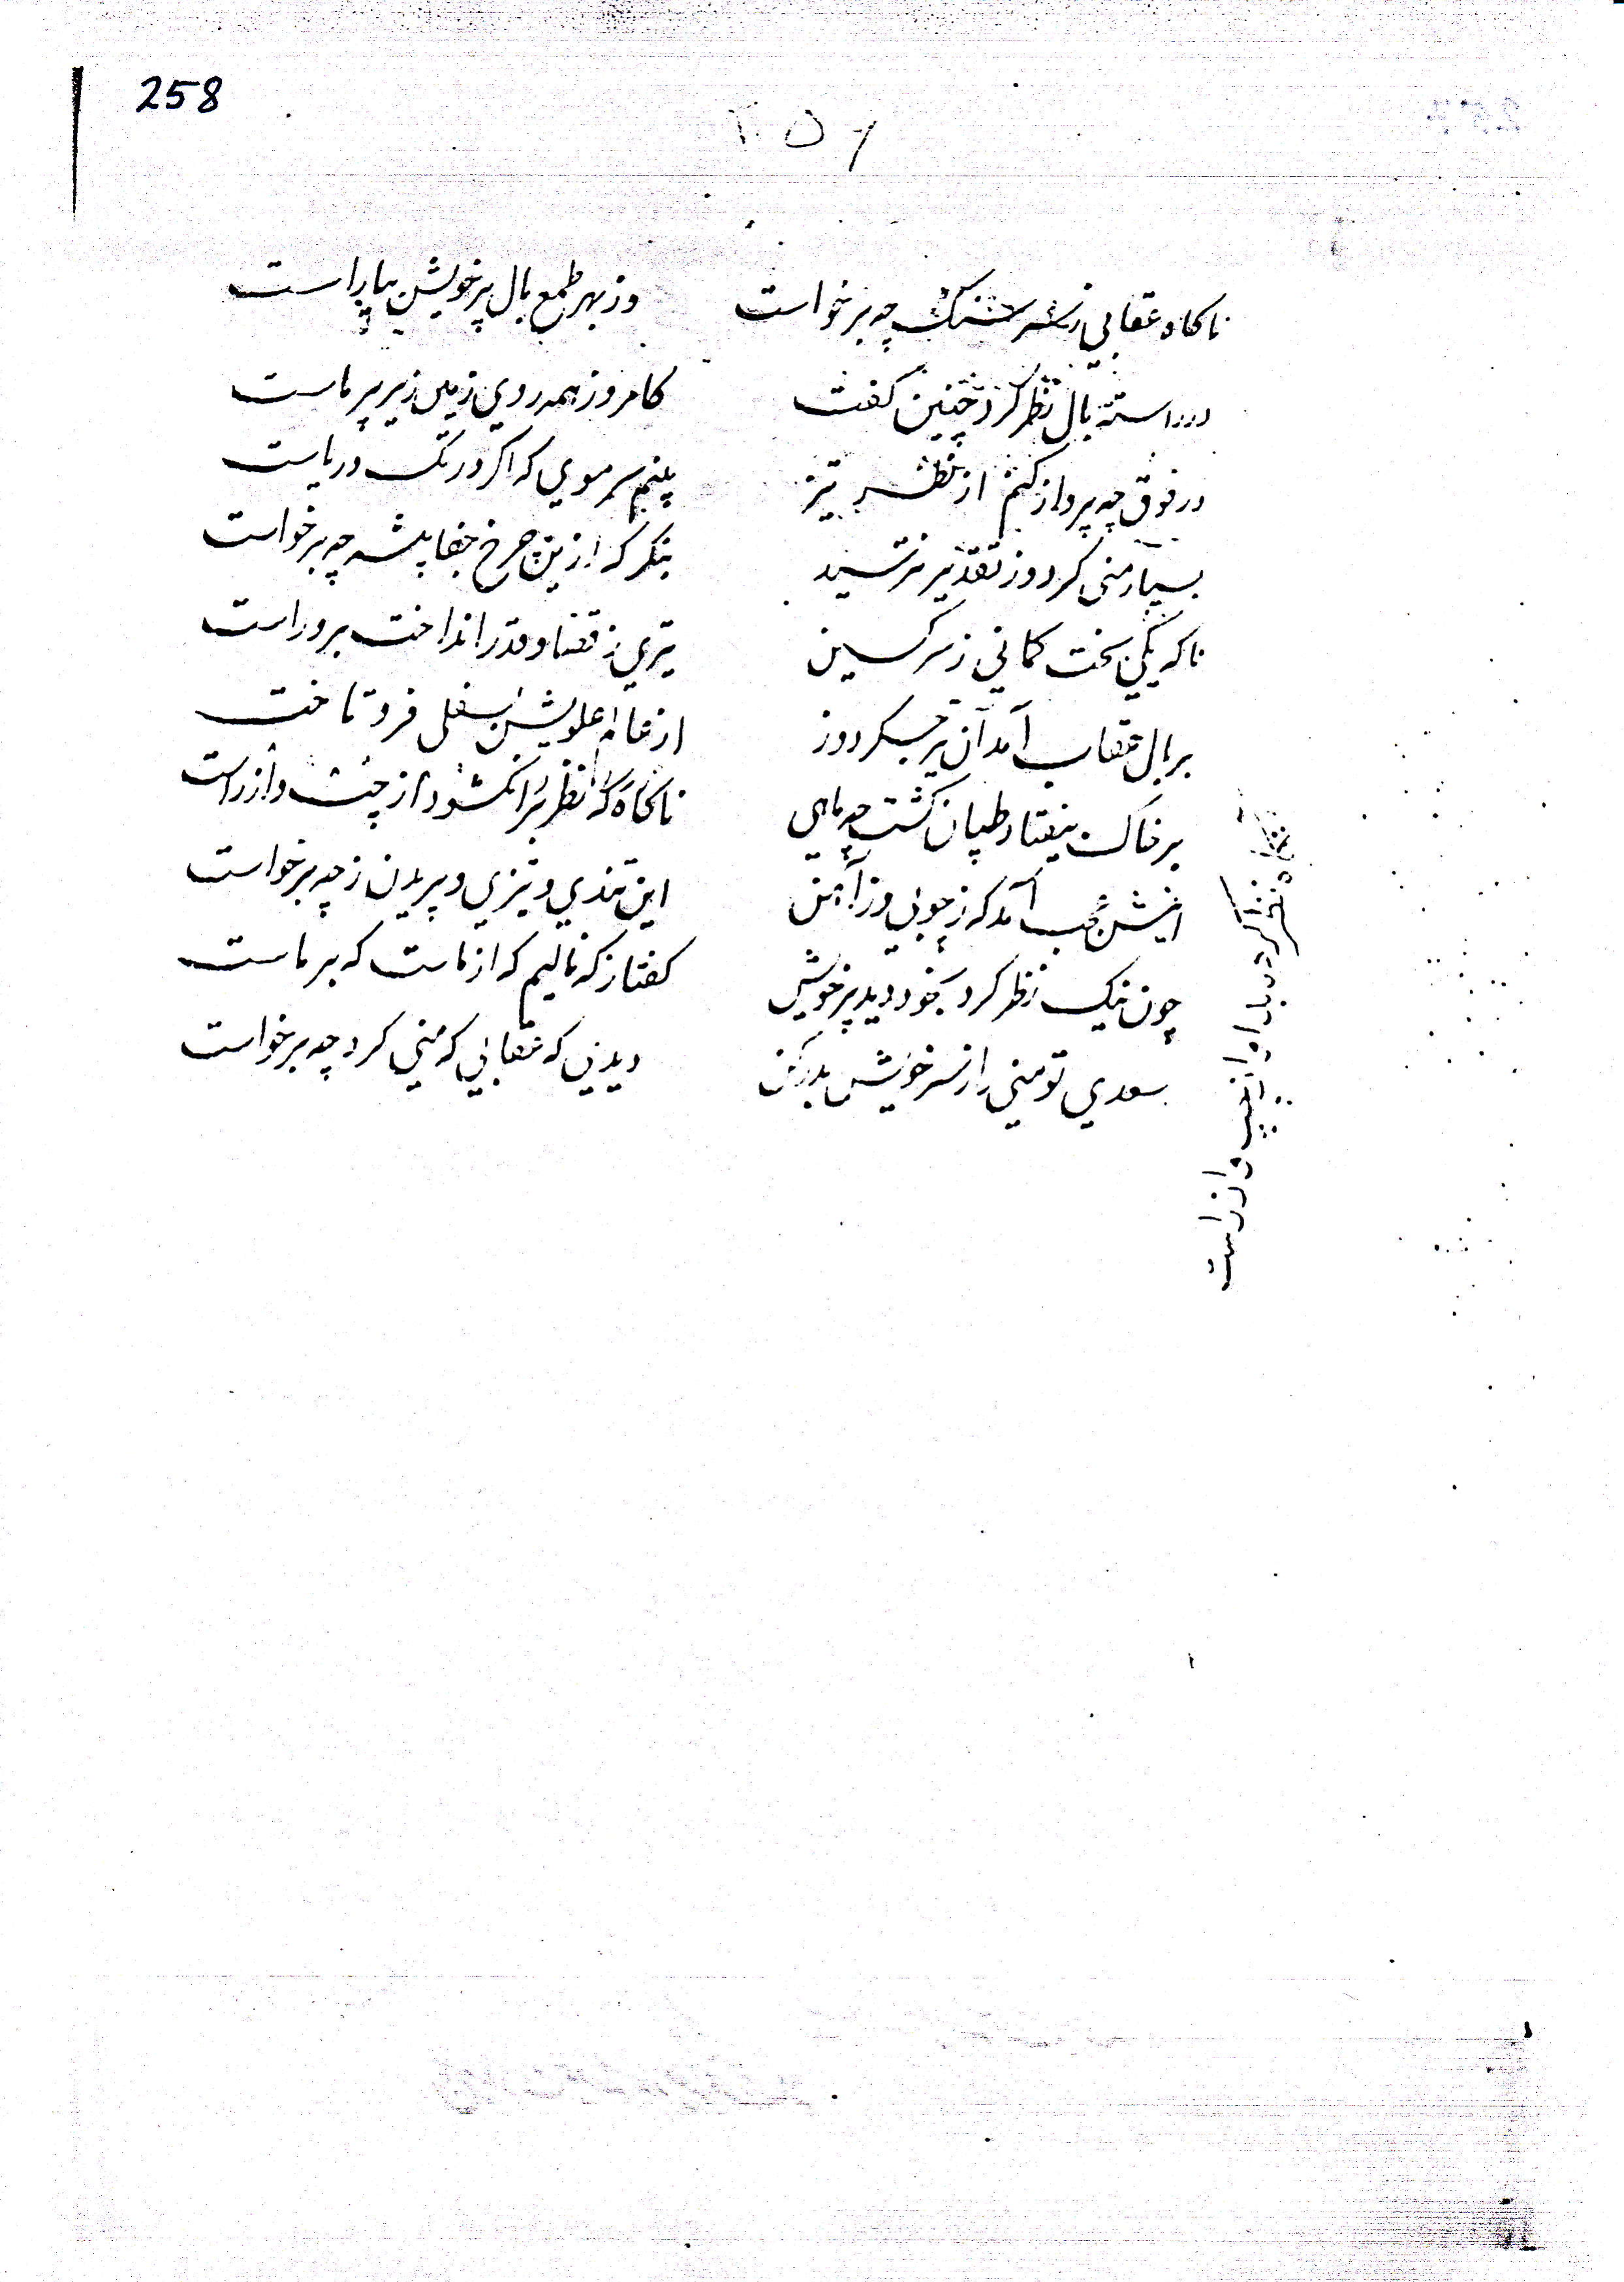 258
۲۵۶
ناکاه عقابی ز سر سنک چه برخواست وز بهر طمع بال پر خویش بیاراست
در راسته بال نظر کرد چنین کفت کامروز همه روی زمین زیر پر ماست
در فوق چه پرواز کنم از نظر تیز بینم سر موی که اکر در تک دریاست
بسیار منی کرد و ز تقدیر نترسید بنکر که ازین چرخ جفا پیشه چه برخواست
ناکه یکی سخت کمانی ز سر کین تیری ز قضا و قدر انداخت برو راست
بر بال عقاب آمد آن تیر جکردوز از عالم علویش بسفلی فرو تاخت
بر خاک بیفتاد طپان کشت چه ماهی ناکاه که نظر پر بکشود از چپ و از راست
اینش عجب آمد که ز چوبی و ز آهن این تندی و تیزی و پریدن ز چه برخواست
چون نیک نظر کرد بخود دید پر خویش کفتا ز که نالیم که از ماست که بر ماست
سعدی تو منی را ز سر خویش بدر کن دیدی که عقابی که منی کرد چه برخواست
نظر کرد باو از چپ و از راست